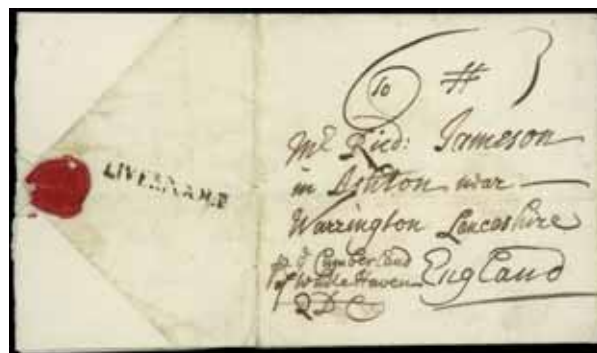 To #
Mr Ricd: Jameson
in Ashton near
Warrington Lancashire
England
p d Cumberland
of White Haven
Q D C